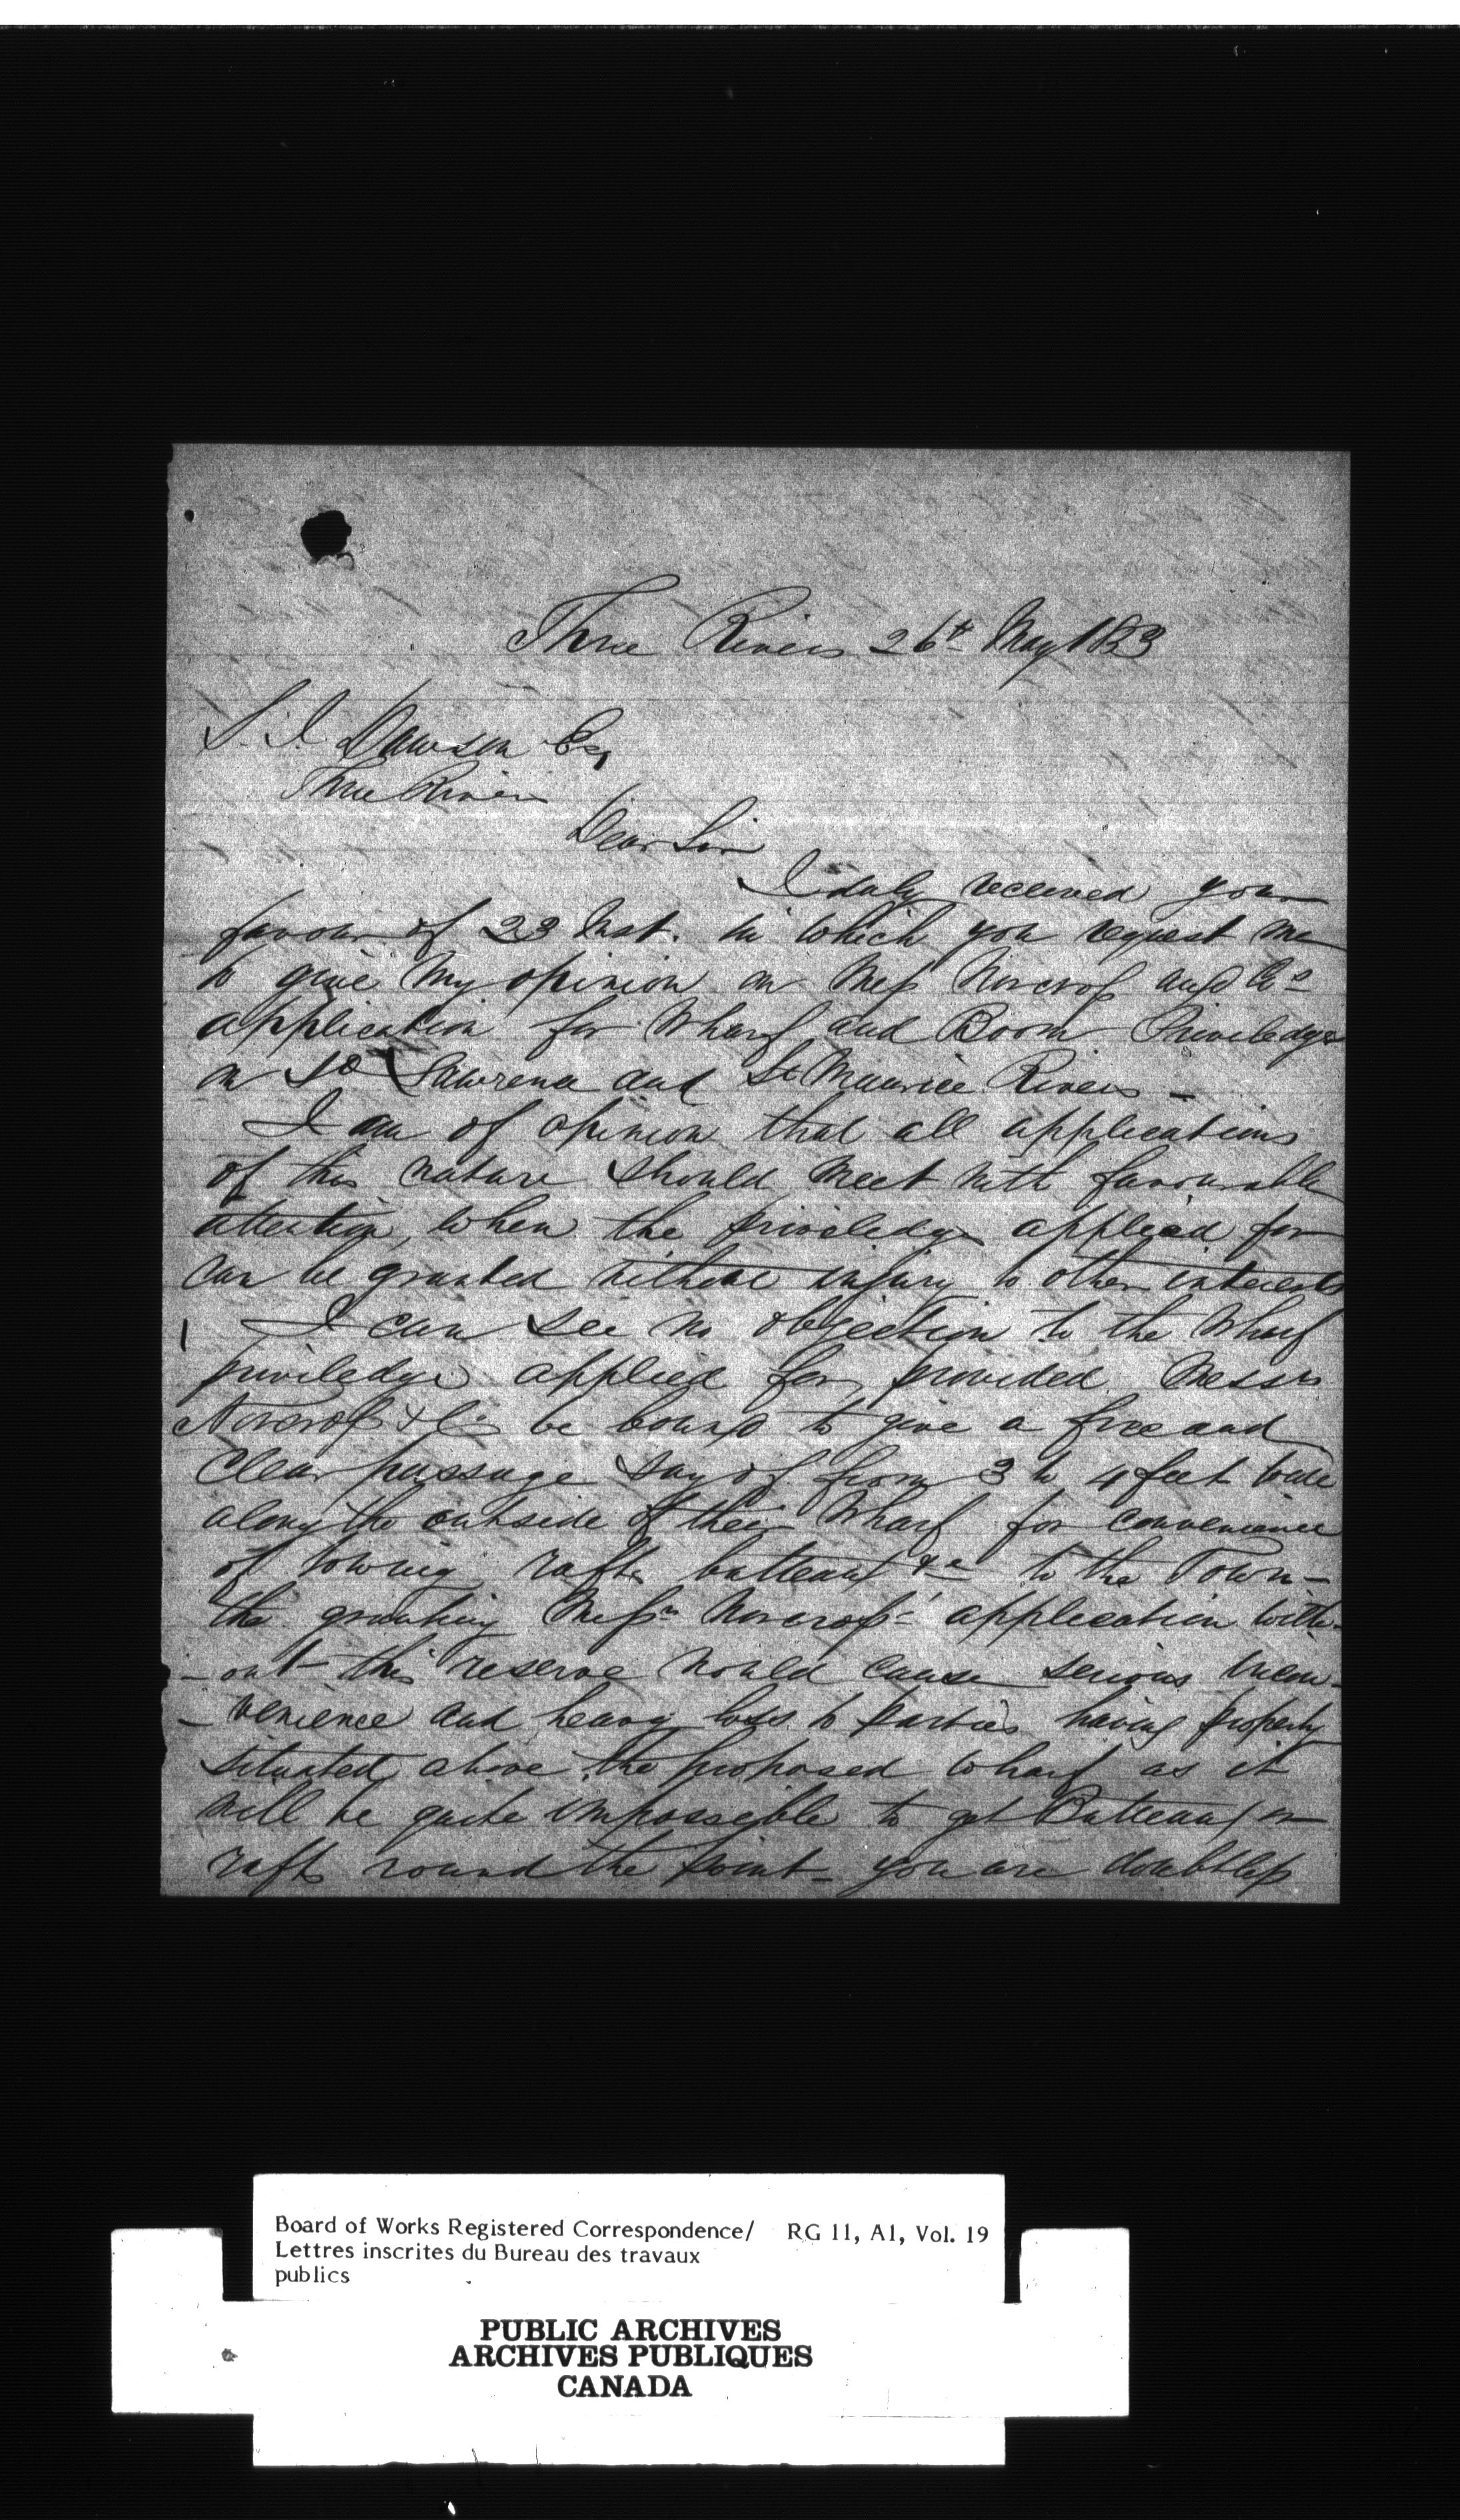 Three Rivers 26th May 1853
S. J. Dawson Esq
Three Rivers
Dear Sir
I duly received your
favour of 23 Inst. in which you request me
to give my opinion on Mess Norcross and Co
application for Wharf and Boom Priviledges
on St Lawrence and St Maurice Rivers -
I am of opinion that all applications
of this nature should meet with favourable
attention, when the priviledge applied for
can be granted without injury to other interests
I can see no objection to the Wharf
priviledge applied for, provided Messrs
Norcross & Co be bound to give a free and
Clear passage say of from 3 to 4 feet wide
along the outside of their Wharf for convenience
of towing rafts batteaux &c to the Town -
the granting Messrs Norcross' application with-
-out this reserve would cause serious incon-
-venience and heavy loss to parties having property
situated above the proposed wharf as it
will be quite impossible to get Batteaux or
rafts round the point - you are doubtless
Board of Works Registered Correspondence/ RG 11, A1, Vol. 19
Lettres inscrites du Bureau des travaux
publics
PUBLIC ARCHIVES
ARCHIVES PUBLIQUES
CANADA